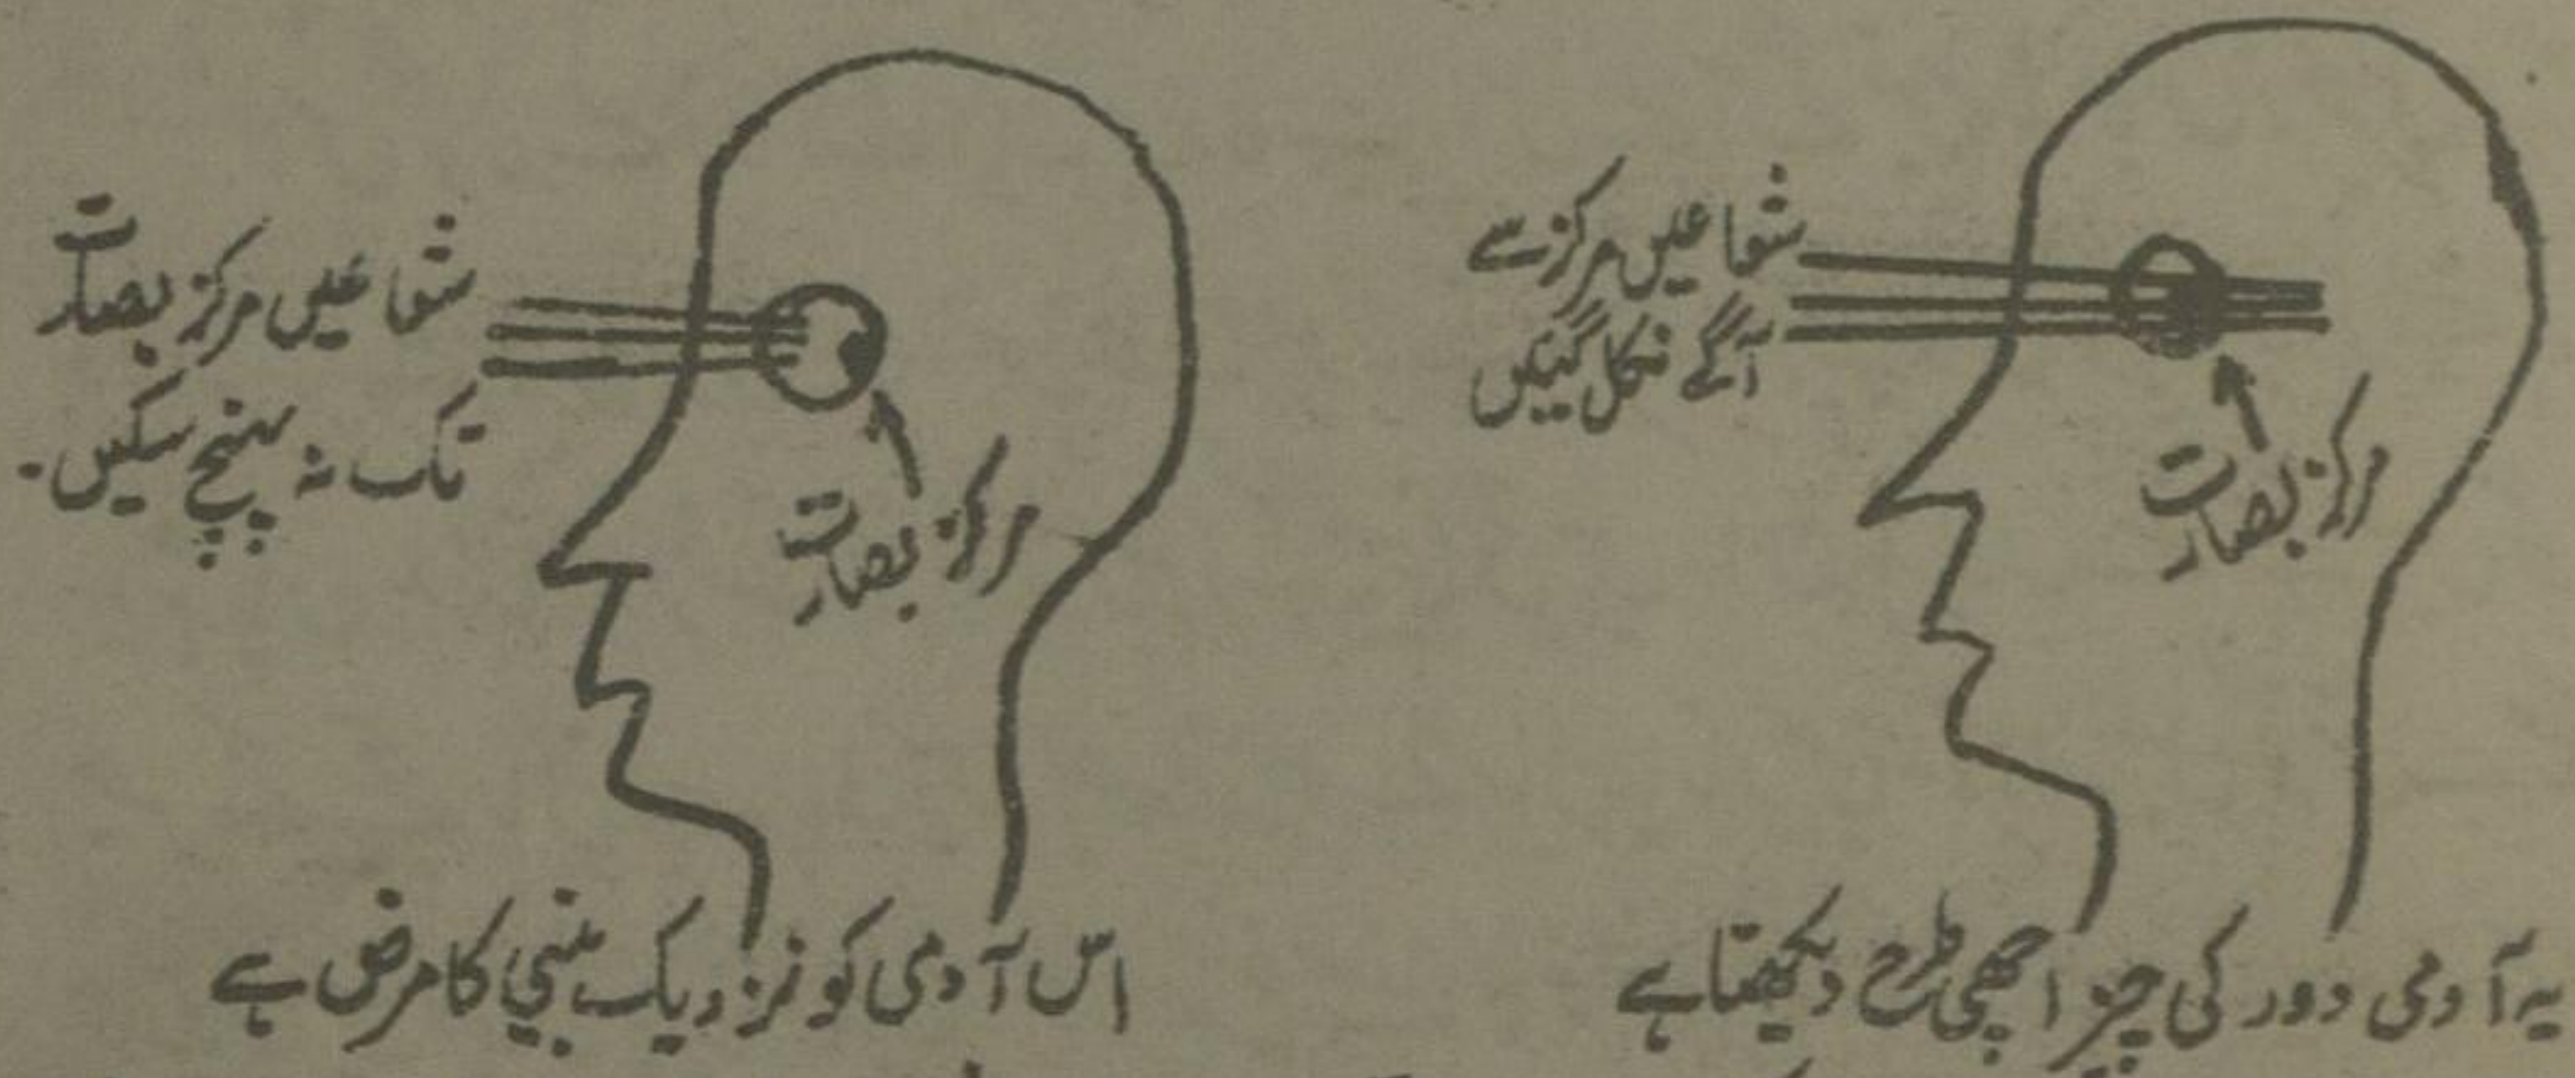 شعاعیں مرکز سے
آگے نکل گیئں
مرکز بصارت
یہ آدمی دور کی چیز اچھی طرح دیکھتا ہے
شعاعیں مرکز بصارت
تک نہ پہنچ سکیں۔
مرکز بصارت
اس آدمی کو نزدیک بینی کا مرض ہے